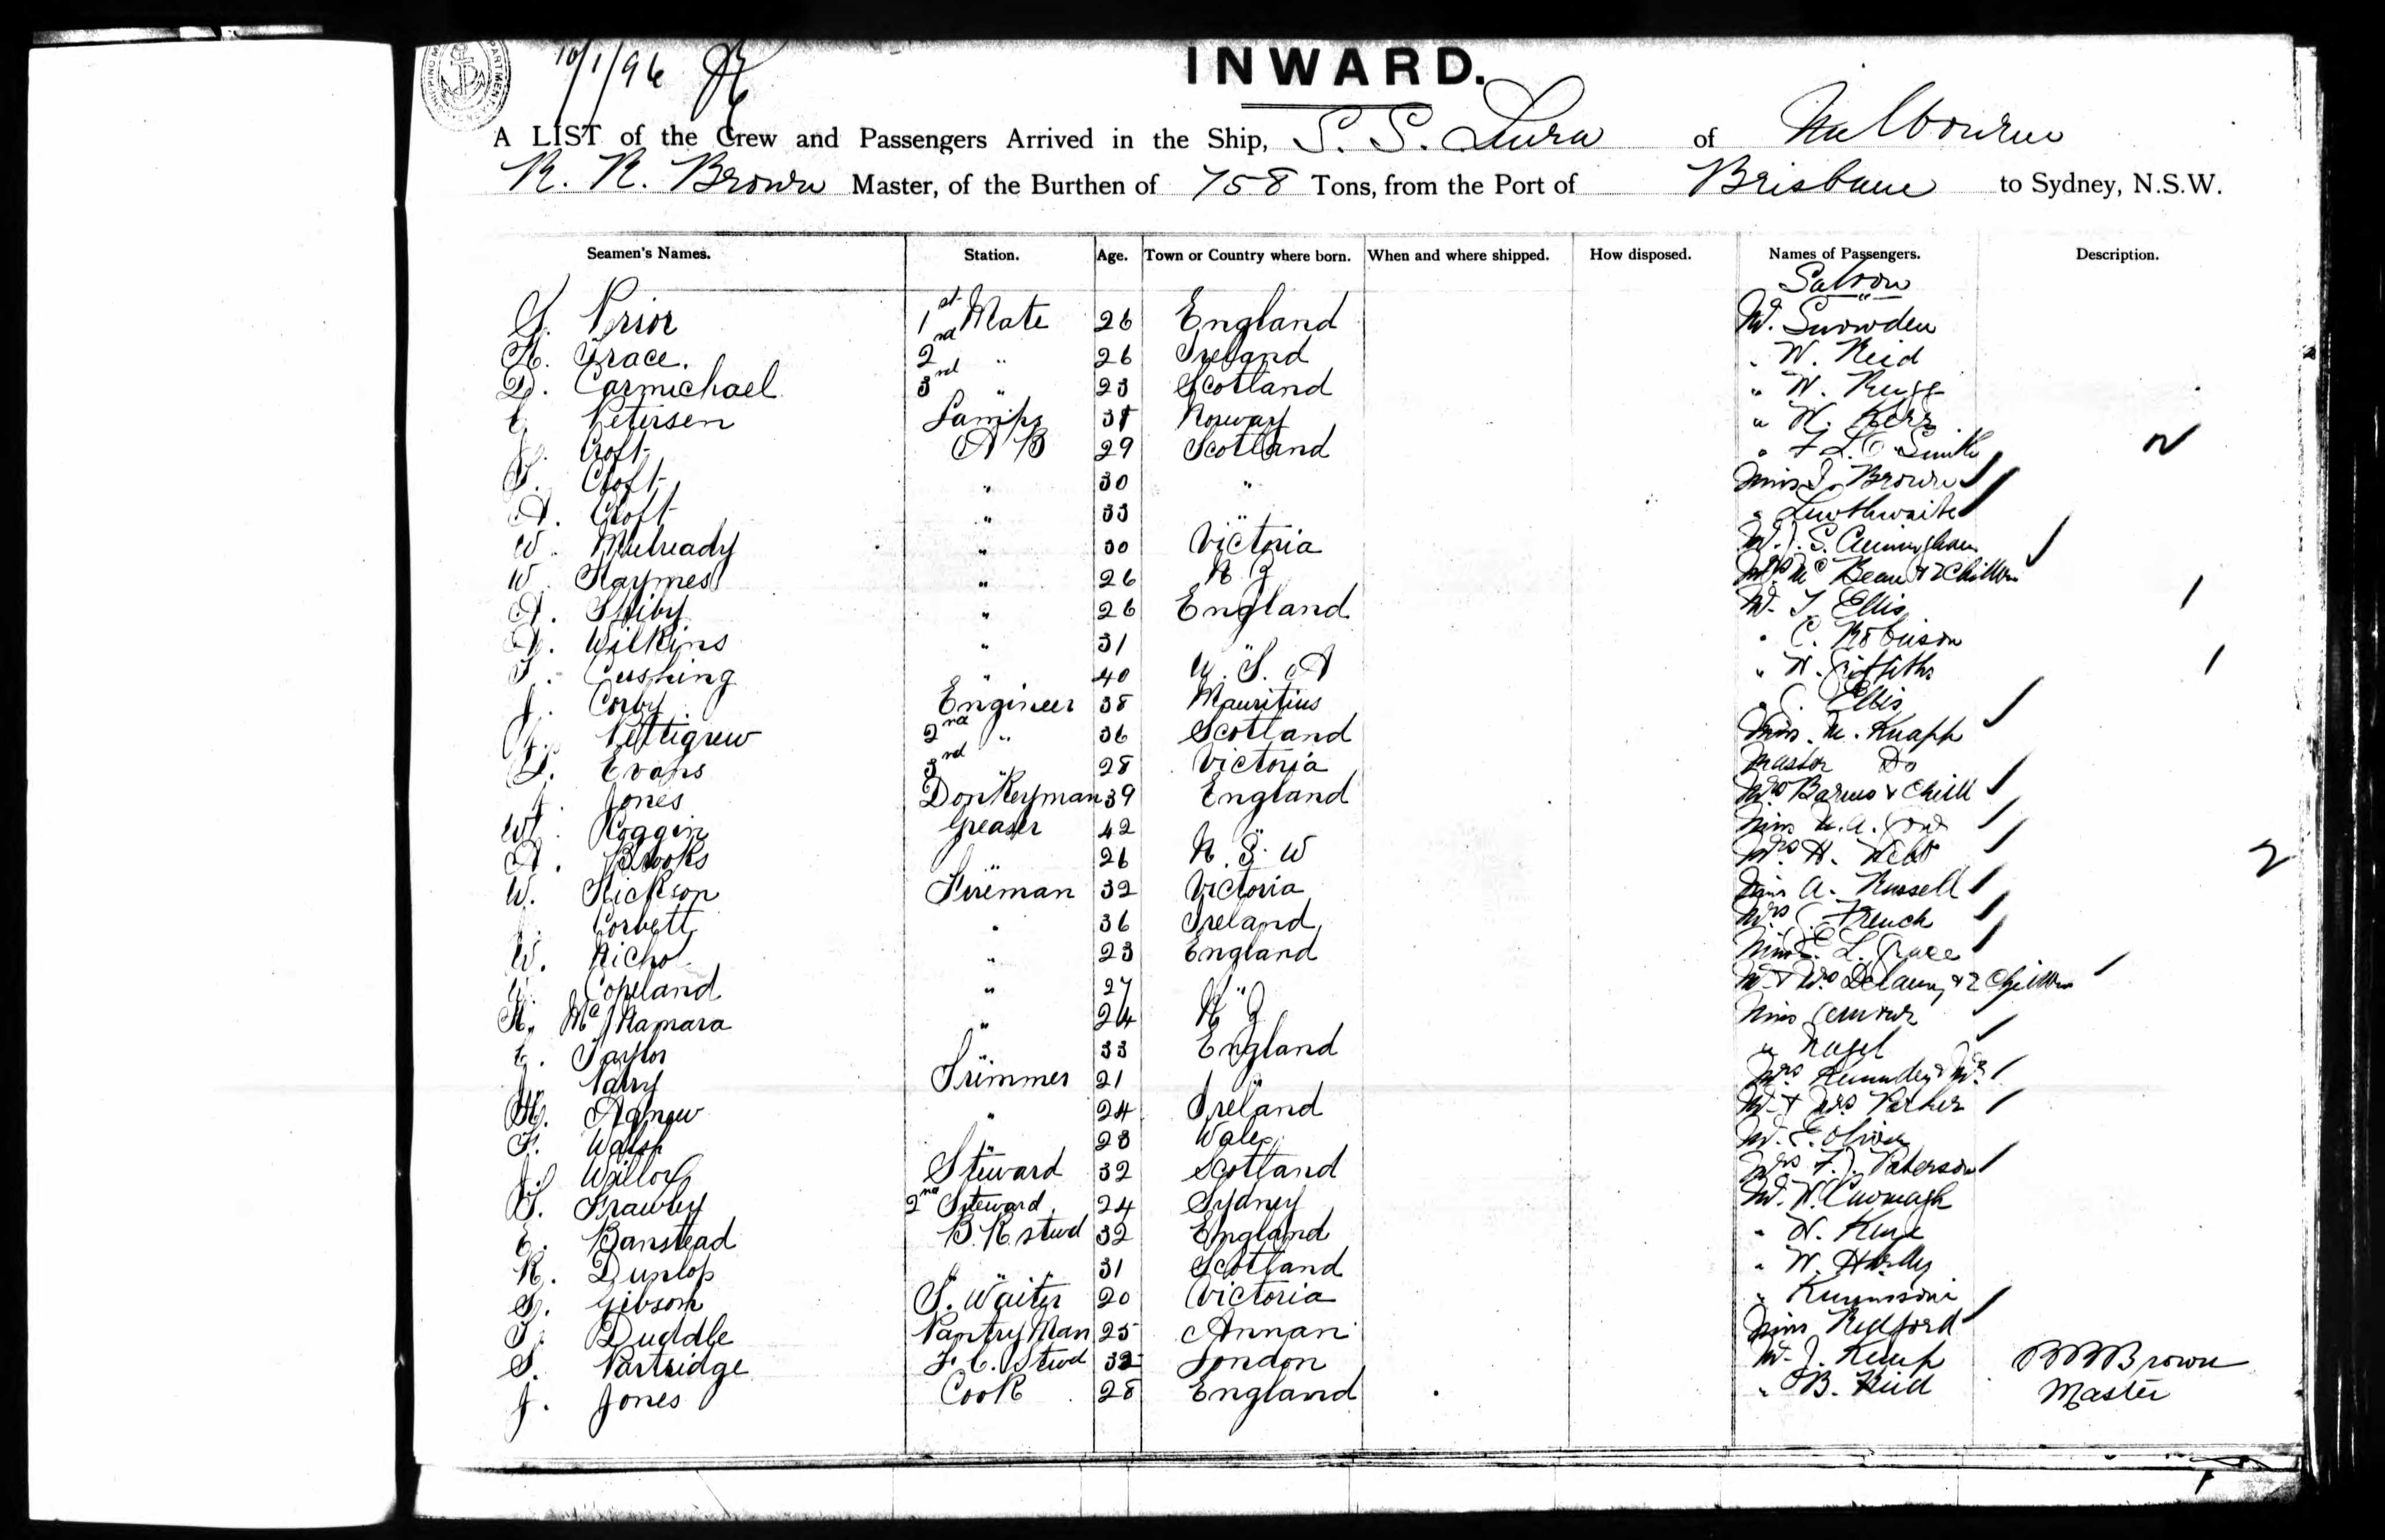 10/1/96
INWARD.
A LIST of the Crew and Passengers Arrived in the Ship, S. S. Lura of Melbourne
R. R. Brown Master, of the Burthen of 758 Tons, from the Port of Brisbane to Sydney, N.S.W.
Seamen's Names. Station. Age. Town or Country where born. When and where shipped. How disposed. Names of Passengers. Description.
Saloon
S. Prior 1st Mate 26 England Mr. Snowden
H. Grace. 2nd " 26 Ireland " W. Reid
D. Carmichael 3rd " 23 Scotland " W. Rugg
Petersen Lamps 38 Norway " W. Kerr
Croft A B 29 Scotland " F L. C. Smith
Croft " 30 " Miss J. Brown
A. Croft " 33 " " Lewthwaite
W. Mulready " 30 Victoria Mr. J. S. Cunningham
W. Haymes " 26 N Z Mrs Mc Bean & 2 Children
A. " 26 England Mr. T. Ellis
Wilkins " 31 " " C. Robinson
T. Cushing " 40 U. S. A " H. Griffiths
J. Corby Engineer 38 Mauritius " Ellis
Pettigrew 2nd " 36 Scotland Miss. M. Knapp
Evans 3rd " 28 Victoria Master Do
J. Jones Donkeyman 39 England Mrs Barnes & Child
W. Coggin Greaser 42 " Miss
A. Brooks " 26 N. S. W Mrs H. Webb 2
W. Hickson Fireman 32 Victoria Miss A. Russell
J. Corbett " 36 Ireland Mrs French
W. Nichol " 23 England Miss E. L. Grace
Copeland " 27 " Mr & Mrs Delaney & 2 Children
H. McNamara " 24 N Z Miss
E. Taylor " 33 England " Nagel
Parry Trimmer 21 " Mrs
H. Agnew " 24 Ireland Mr & Mrs Parker
F. Walsh " 28 Wales Mr. E. Oliver
J. Steward 32 Scotland Mrs F. J. Paterson
T. Frawley 2nd Steward 24 Sydney Mr. W. Cavanagh
E. Banstead B. R. stwd 32 England
R. Dunlop " " " 31 Scotland " W.
S. Gibson S. Waiter 20 Victoria
T. Duddle Pantry Man 25 Annan Miss Redford
S. Partridge F. C. Stwd 32 London Mr. J. Kemp RRBrown
J. Jones Cook 28 England " B. Reid Master